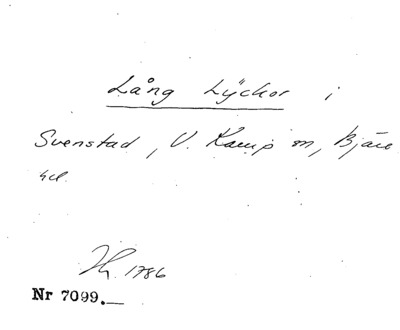 Lång Lyckor i
Svenstad, V. Karup sn, Bjäre
hd.
1786
Nr 7099.